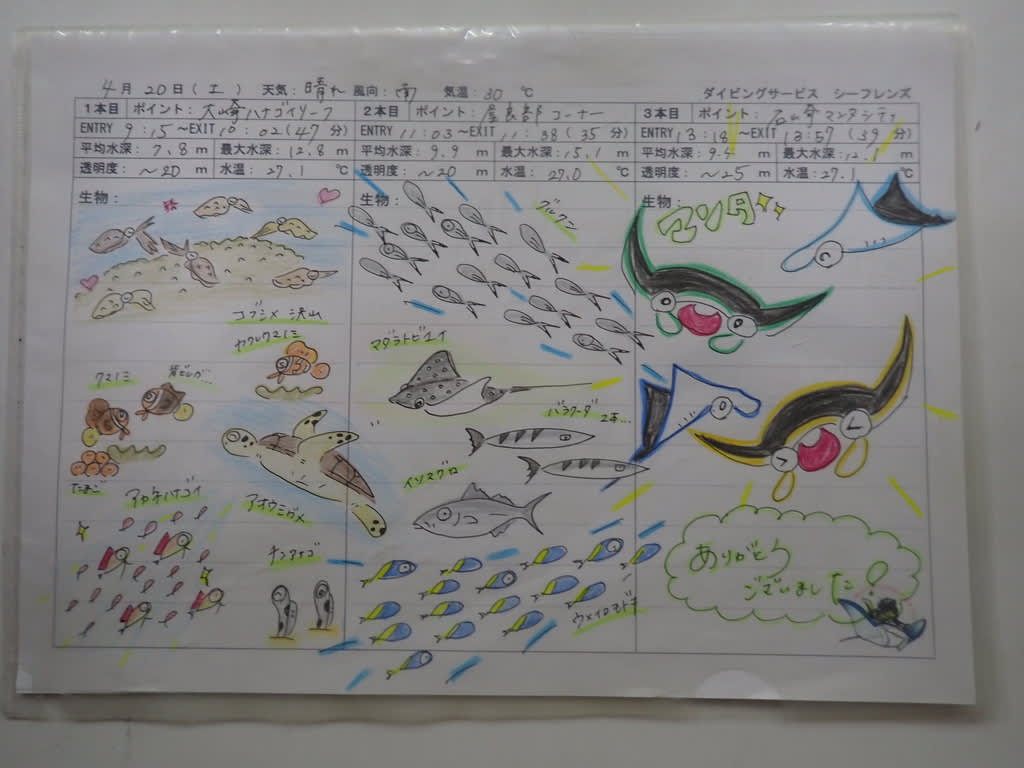 4月20日(土) 天気:晴れ 風向:南 気温:30 ℃ ダイビングサービス シーフレンズ
1本目 ポイント:大崎ハナゴイリーフ
ENTRY 9:15~EXIT 10:02(47分)
平均水深:7.8 m 最大水深:12.8 m
透明度: ~20 m 水温:27.1 ℃
生物:
コブシメ 沢山
ヤクシャクマノミ
クマノミ
たまご
アカネハナゴイ
アオウミガメ
チンアナゴ
2本目 ポイント:屋良部コーナー
ENTRY 11:03~EXIT 11:38(35分)
平均水深:9.9 m 最大水深:15.1 m
透明度: ~20 m 水温:27.0 ℃
生物:
グルクン
マダラトビエイ
バラクーダ 2本...
イソマグロ
ウメイロモドキ
3本目 ポイント:石崎マンタシティ
ENTRY 13:18~EXIT 13:57(39分)
平均水深:9.4 m 最大水深:12.1 m
透明度: ~25 m 水温:27.1 ℃
生物:
マンタ
ありがとう
ございました!